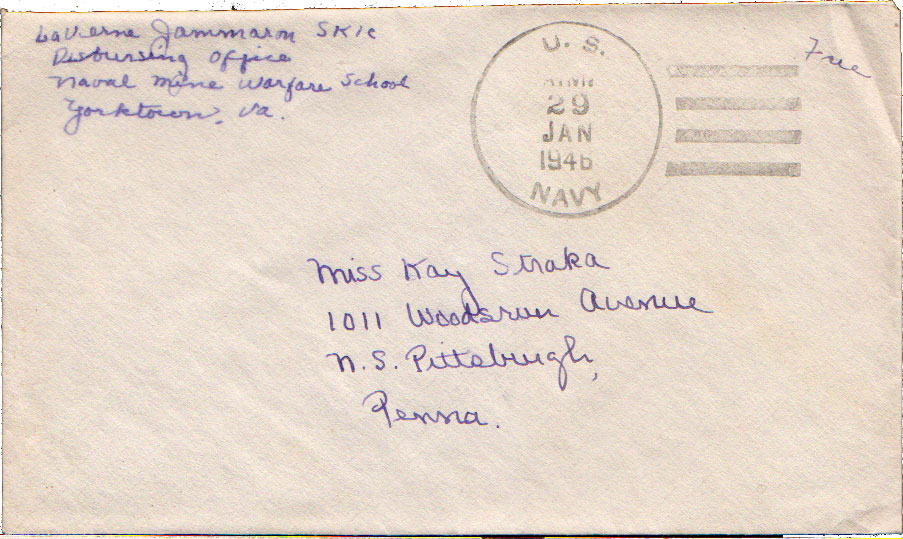 LaVerne Jammaron SK1c
Disbursing Office
Naval Mine Warfare School
Yorktown, Va.
U. S.
29
JAN
1946
NAVY
Free
Miss Kay Straka
1011 Woodsrun Avenue
N. S. Pittsburgh,
Penna.